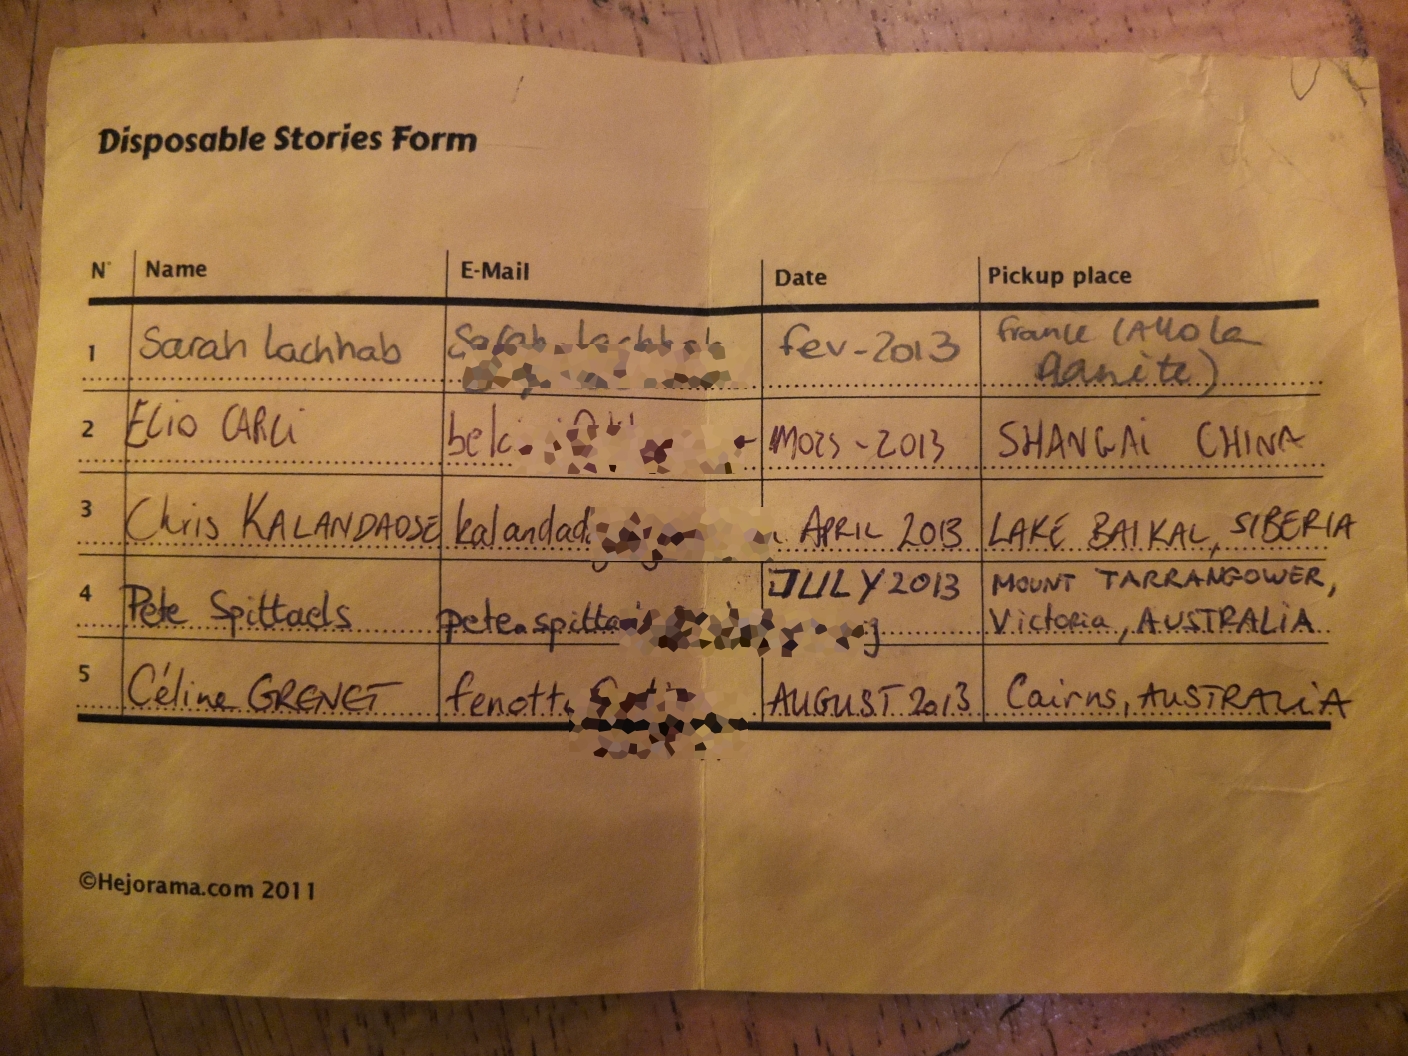 Disposable Stories Form
N° Name E-Mail Date Pickup place
1 Sarah Lachhab Sarah.lachhab fev-2013 france
2 Elio CARLi belc MORS-2013 SHANGAi CHINA
3 Chris KALANDADSE kalandad APRIL 2013 LAKE BAIKAL, SIBERIA
4 Pete Spittaels pete.spitta JULY 2013 MOUNT TARRANGOWER,
Victoria, AUSTRALiA
5 Céline GRENET fenott AUGUST 2013 Cairns, AUSTRALiA
©Hejorama.com 2011